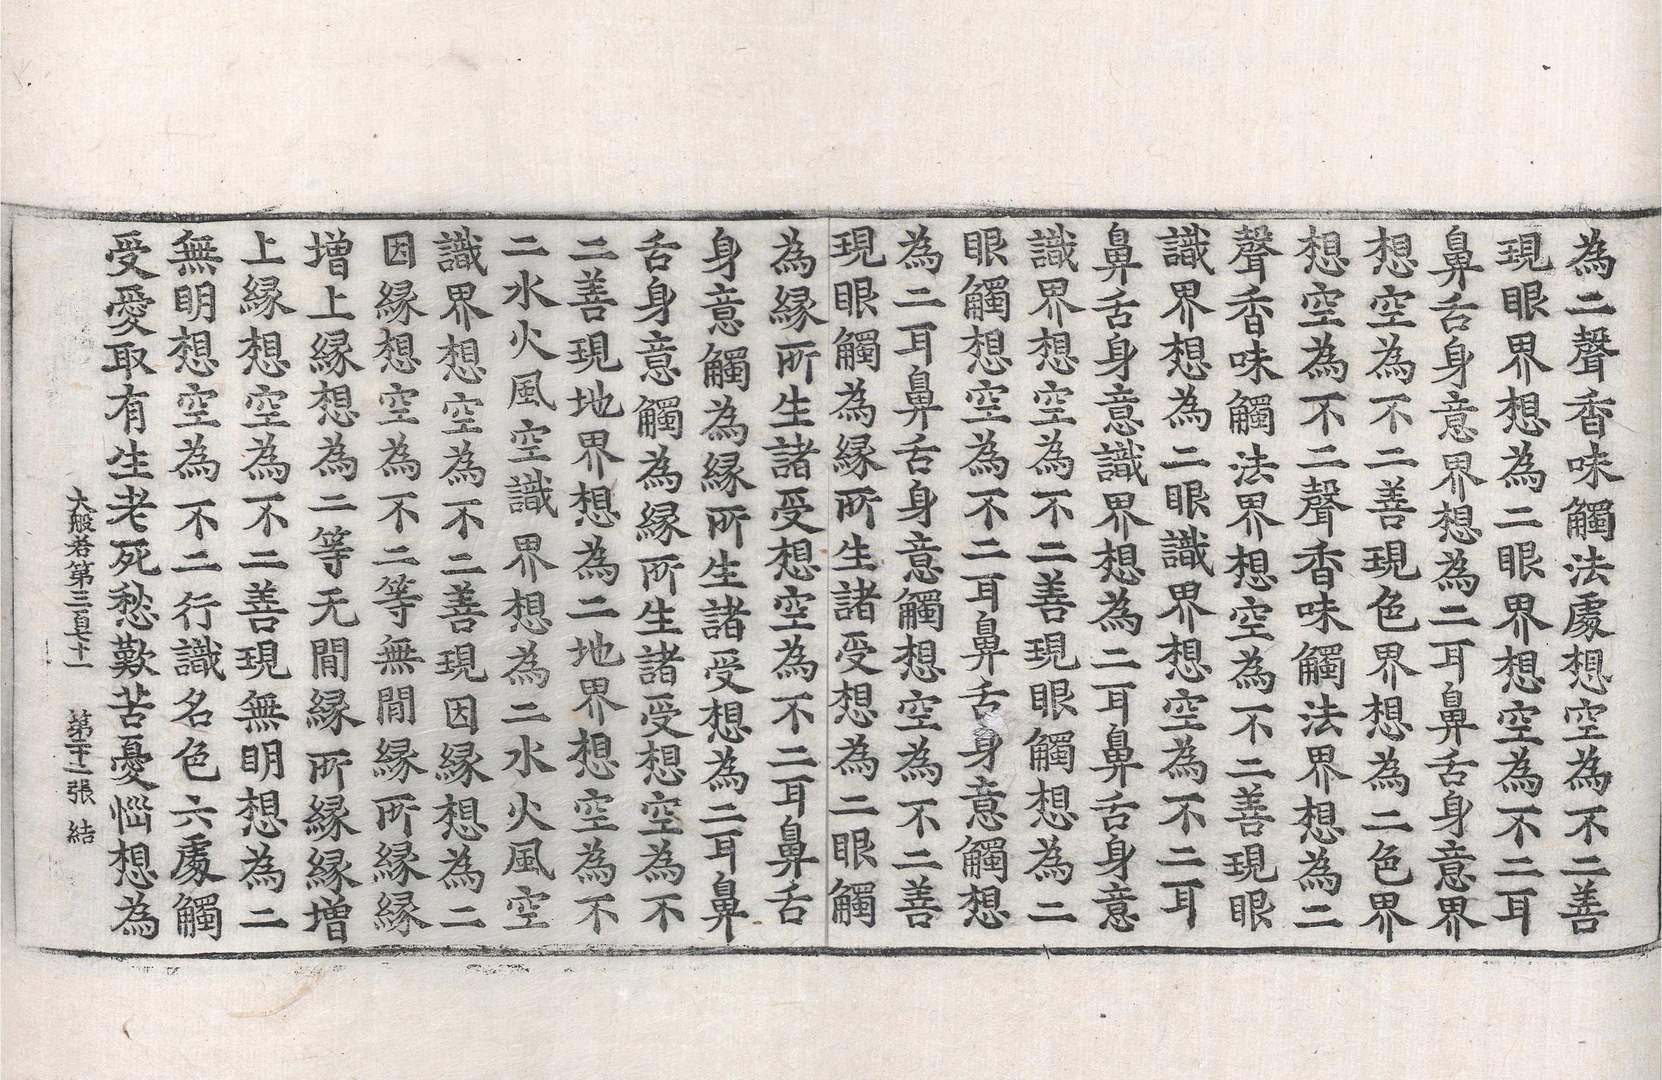 為二聲香味觸法處想空為不二善
現眼界想為二眼界想空為不二耳
鼻舌身意界想為二耳鼻舌身意界
想空為不二善現色界想為二色界
想空為不二聲香味觸法界想為二
聲香味觸法界想空為不二善現眼
識界想為二眼識界想空為不二耳
鼻舌身意識界想為二耳鼻舌身意
識界想空為不二善現眼觸想為二
眼觸想空為不二耳鼻舌身意觸想
為二耳鼻舌身意觸想空為不二善
現眼觸為緣所生諸受想為二眼觸
為緣所生諸受想空為不二耳鼻舌
身意觸為緣所生諸受想為二耳鼻
舌身意觸為緣所生諸受想空為不
二善現地界想為二地界想空為不
二水火風空識界想為二水火風空
識界想空為不二善現因緣想為二
因緣想空為不二等無間緣所緣緣
增上緣想為二等无間緣所緣緣增
上緣想空為不二善現無明想為二
無明想空為不二行識名色六處觸
受愛取有生老死愁歎苦憂惱想為
大般若第三百七十一 第二十二張 結